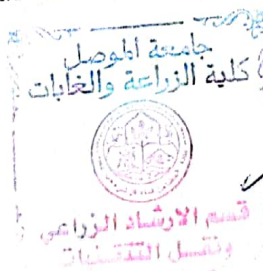 جامعة الموصل
كلية الزراعة والغابات
قسم الارشاد الزراعي
ونقل التقنيات